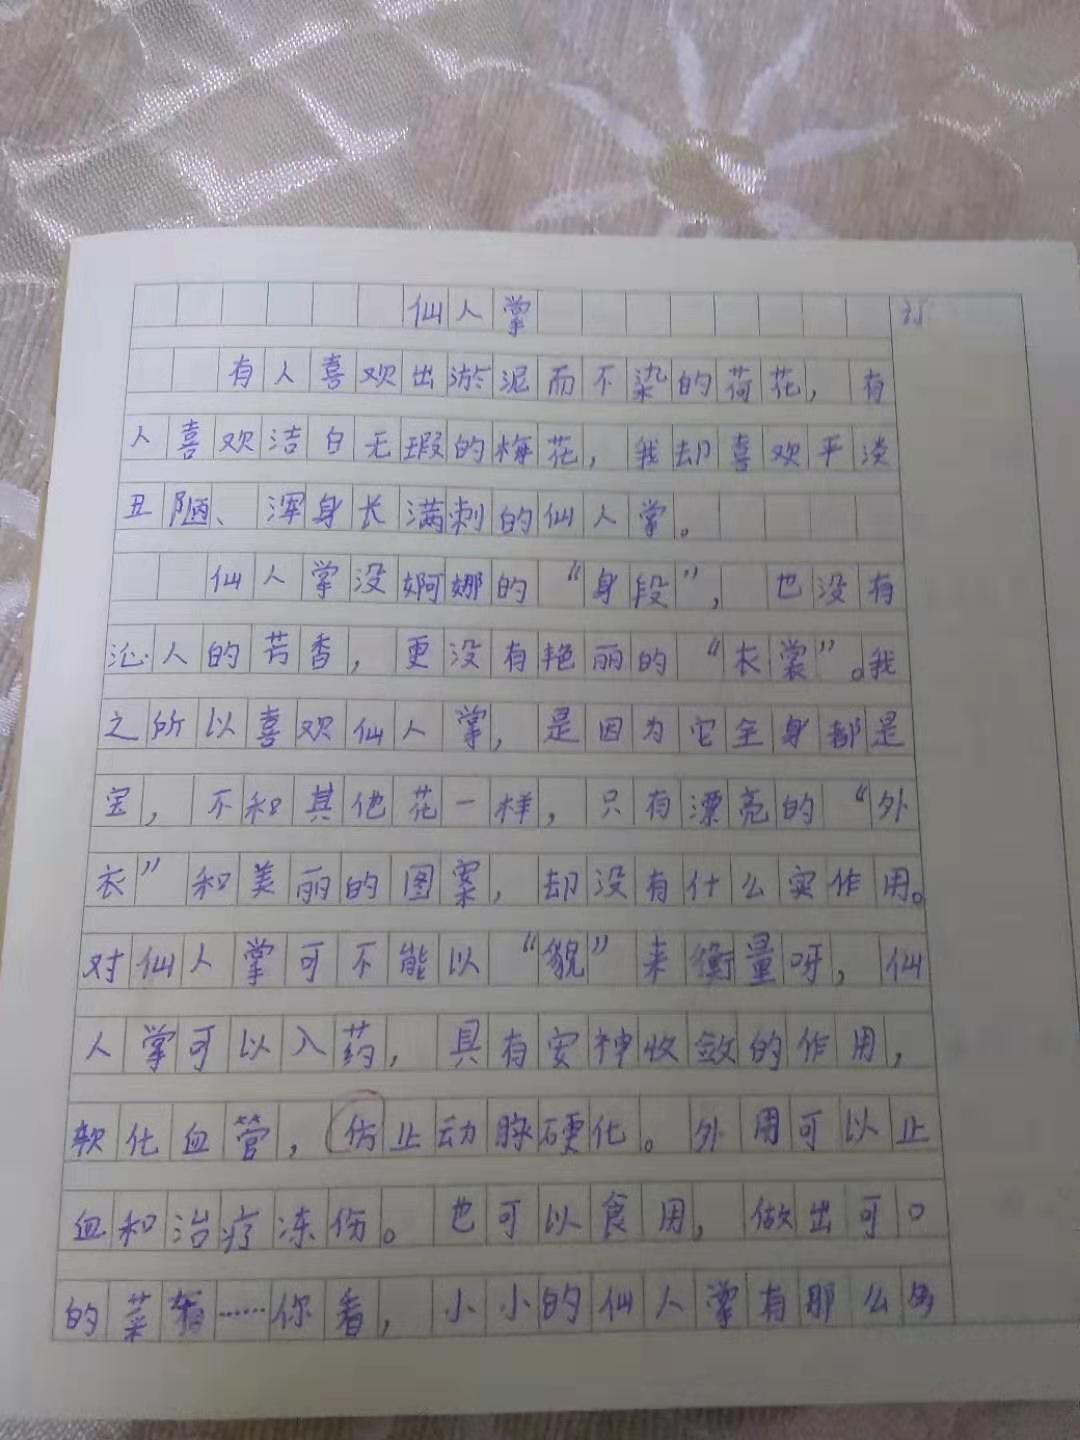 仙人掌
订
有人喜欢出淤泥而不染的荷花，有
人喜欢洁白无瑕的梅花，我却喜欢平淡
丑陋、浑身长满刺的仙人掌。
仙人掌没婀娜的“身段”，也没有
沁人的芳香，更没有艳丽的“衣裳”。我
之所以喜欢仙人掌，是因为它全身都是
宝，不和其他花一样，只有漂亮的“外
衣”和美丽的图案，却没有什么实作用。
对仙人掌可不能以“貌”来衡量呀，仙
人掌可以入药，具有安神收敛的作用，
软化血管，伤止动脉硬化。外用可以止
血和治疗冻伤。也可以食用，做出可口
的菜肴……你看，小小的仙人掌有那么多